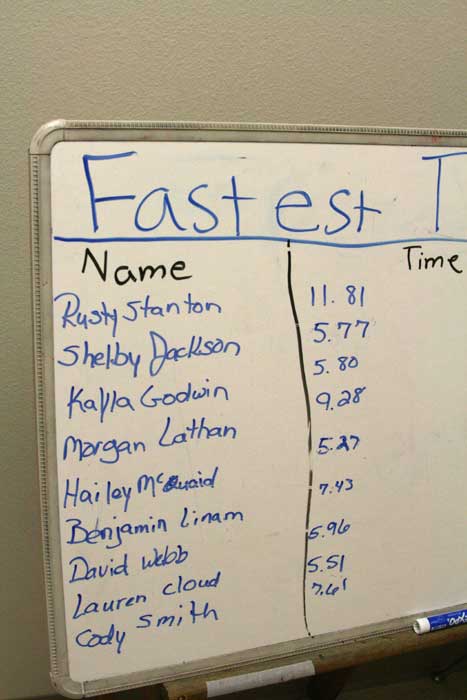 Fastest T
Name Time
Rusty Stanton 11.81
Shelby Jackson 5.77
Kayla Godwin 5.80
Morgan Lathan 9.28
Hailey McQuaid 5.27
Benjamin Linam 7.43
David Webb 5.96
Lauren Cloud 5.51
Cody Smith 7.61